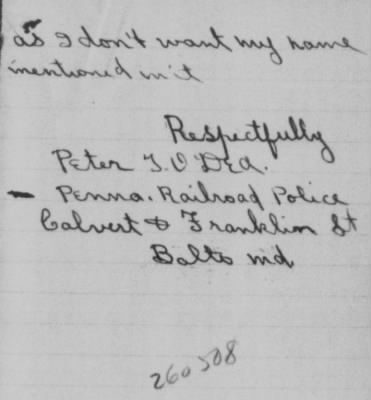 as I don't want my name
mentioned in it
Respectfully
Peter J. O'Dea.
– Penna. Railroad Police
Calvert & Franklin St
Balto md
260508